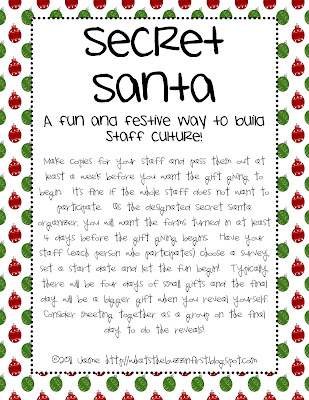 Secret
Santa
A fun and festive way to build
staff culture!
Make copies for your staff and pass them out at
least a week before you want the gift giving to
begin. It's fine if the whole staff does not want to
participate. As the designated secret santa
organizer, you will want the forms turned in at least
4 days before the gift giving begins. Have your
staff (each person who participates) choose a survey,
set a start date and let the fun begin! Typically,
there will be four days of small gifts and the final
day will be a bigger gift when you reveal yourself.
Consider meeting together as a group on the final
day to do the reveals!
©2011 Jaime http://whatsthebuzzinfirst.blogspot.com